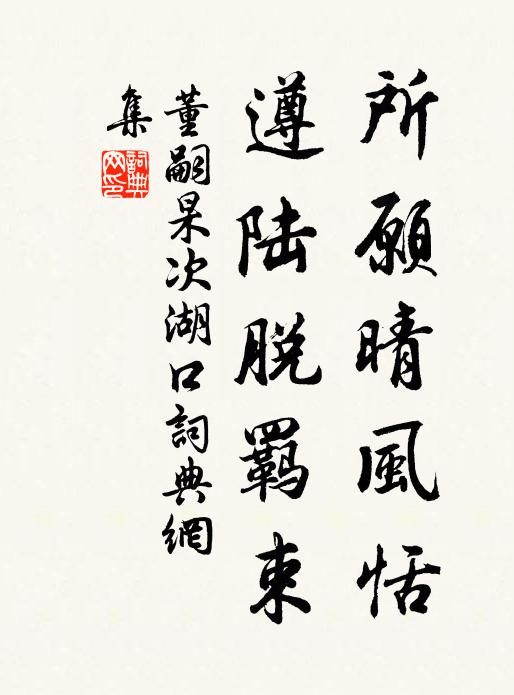 所願晴風恬
遵陆脱羁束
董嗣杲次湖口詞典網
集
詞典网印